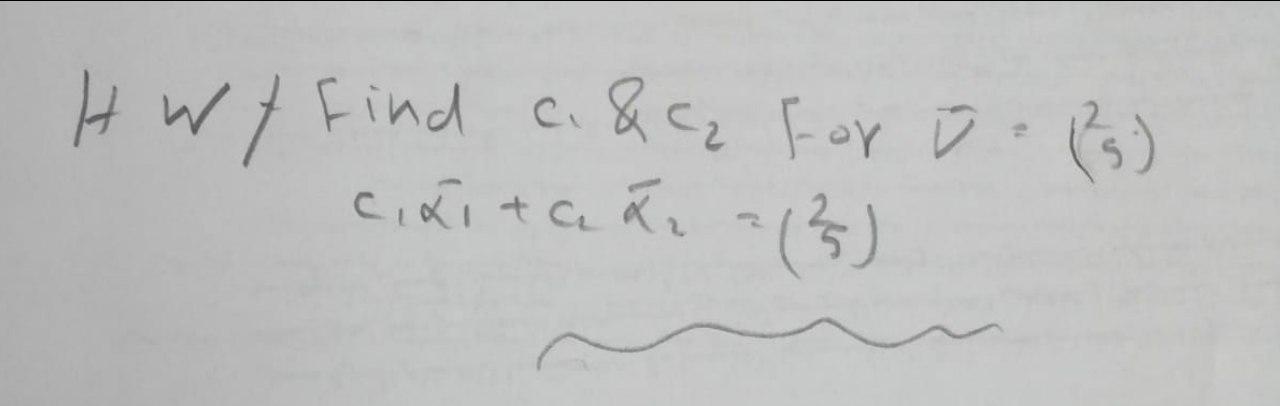 HW/ Find c₁ & c₂ For v̄ = (2 5)
c₁ᾱ₁ + c₂ ᾱ₂ = (2 5)